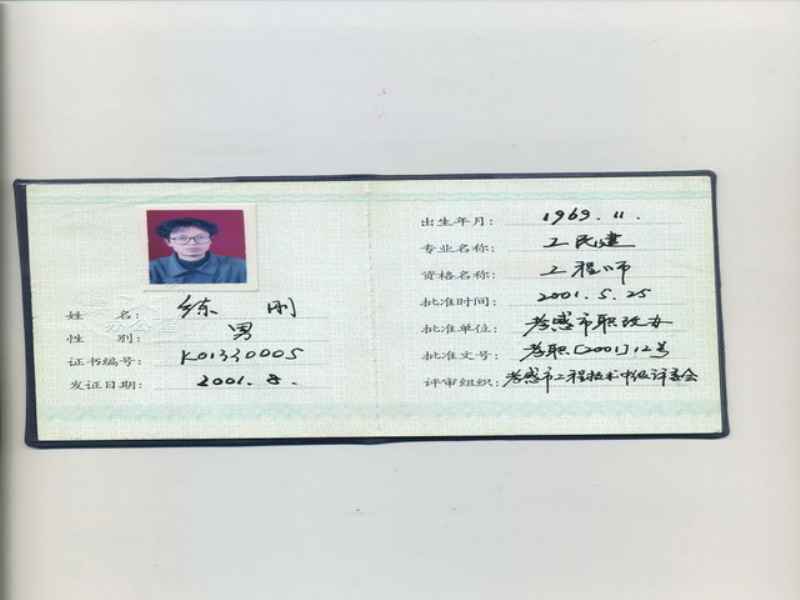 姓 名： 练 刚
性 别： 男
证书编号： K01330005
发证日期： 2001. 8.
出生年月： 1969. 11.
专业名称： 工民建
资格名称： 工程师
批准时间： 2001. 5. 25
批准单位： 孝感市职改办
批准文号： 孝职[2001]12号
评审组织： 孝感市工程技术中级评委会